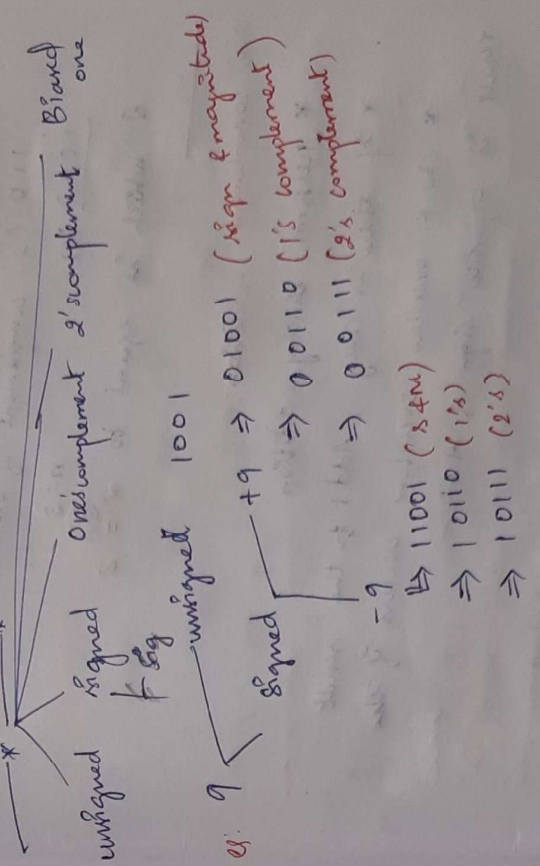 *
unsigned signed one's complement 2's complement Biased one
unsigned 1001
eg: 9
signed +9 ⇒ 01001 (sign & magnitude)
⇒ 0 0110 (1's complement)
⇒ 0 0111 (2's complement)
-9
↳ 11001 (S&M)
⇒ 1 0110 (1's)
⇒ 1 0111 (2's)